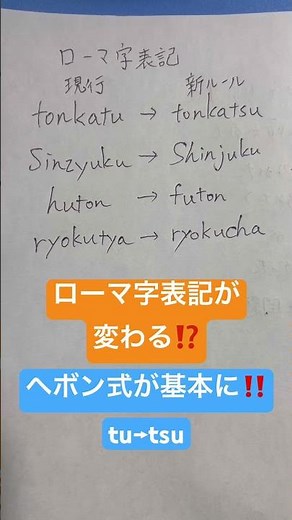 ローマ字表記
現行 新ルール
tonkatu → tonkatsu
Sinzyuku → Shinjuku
huton → futon
ryokutya → ryokucha
ローマ字表記が
変わる⁉️
ヘボン式が基本に‼️
tu→tsu